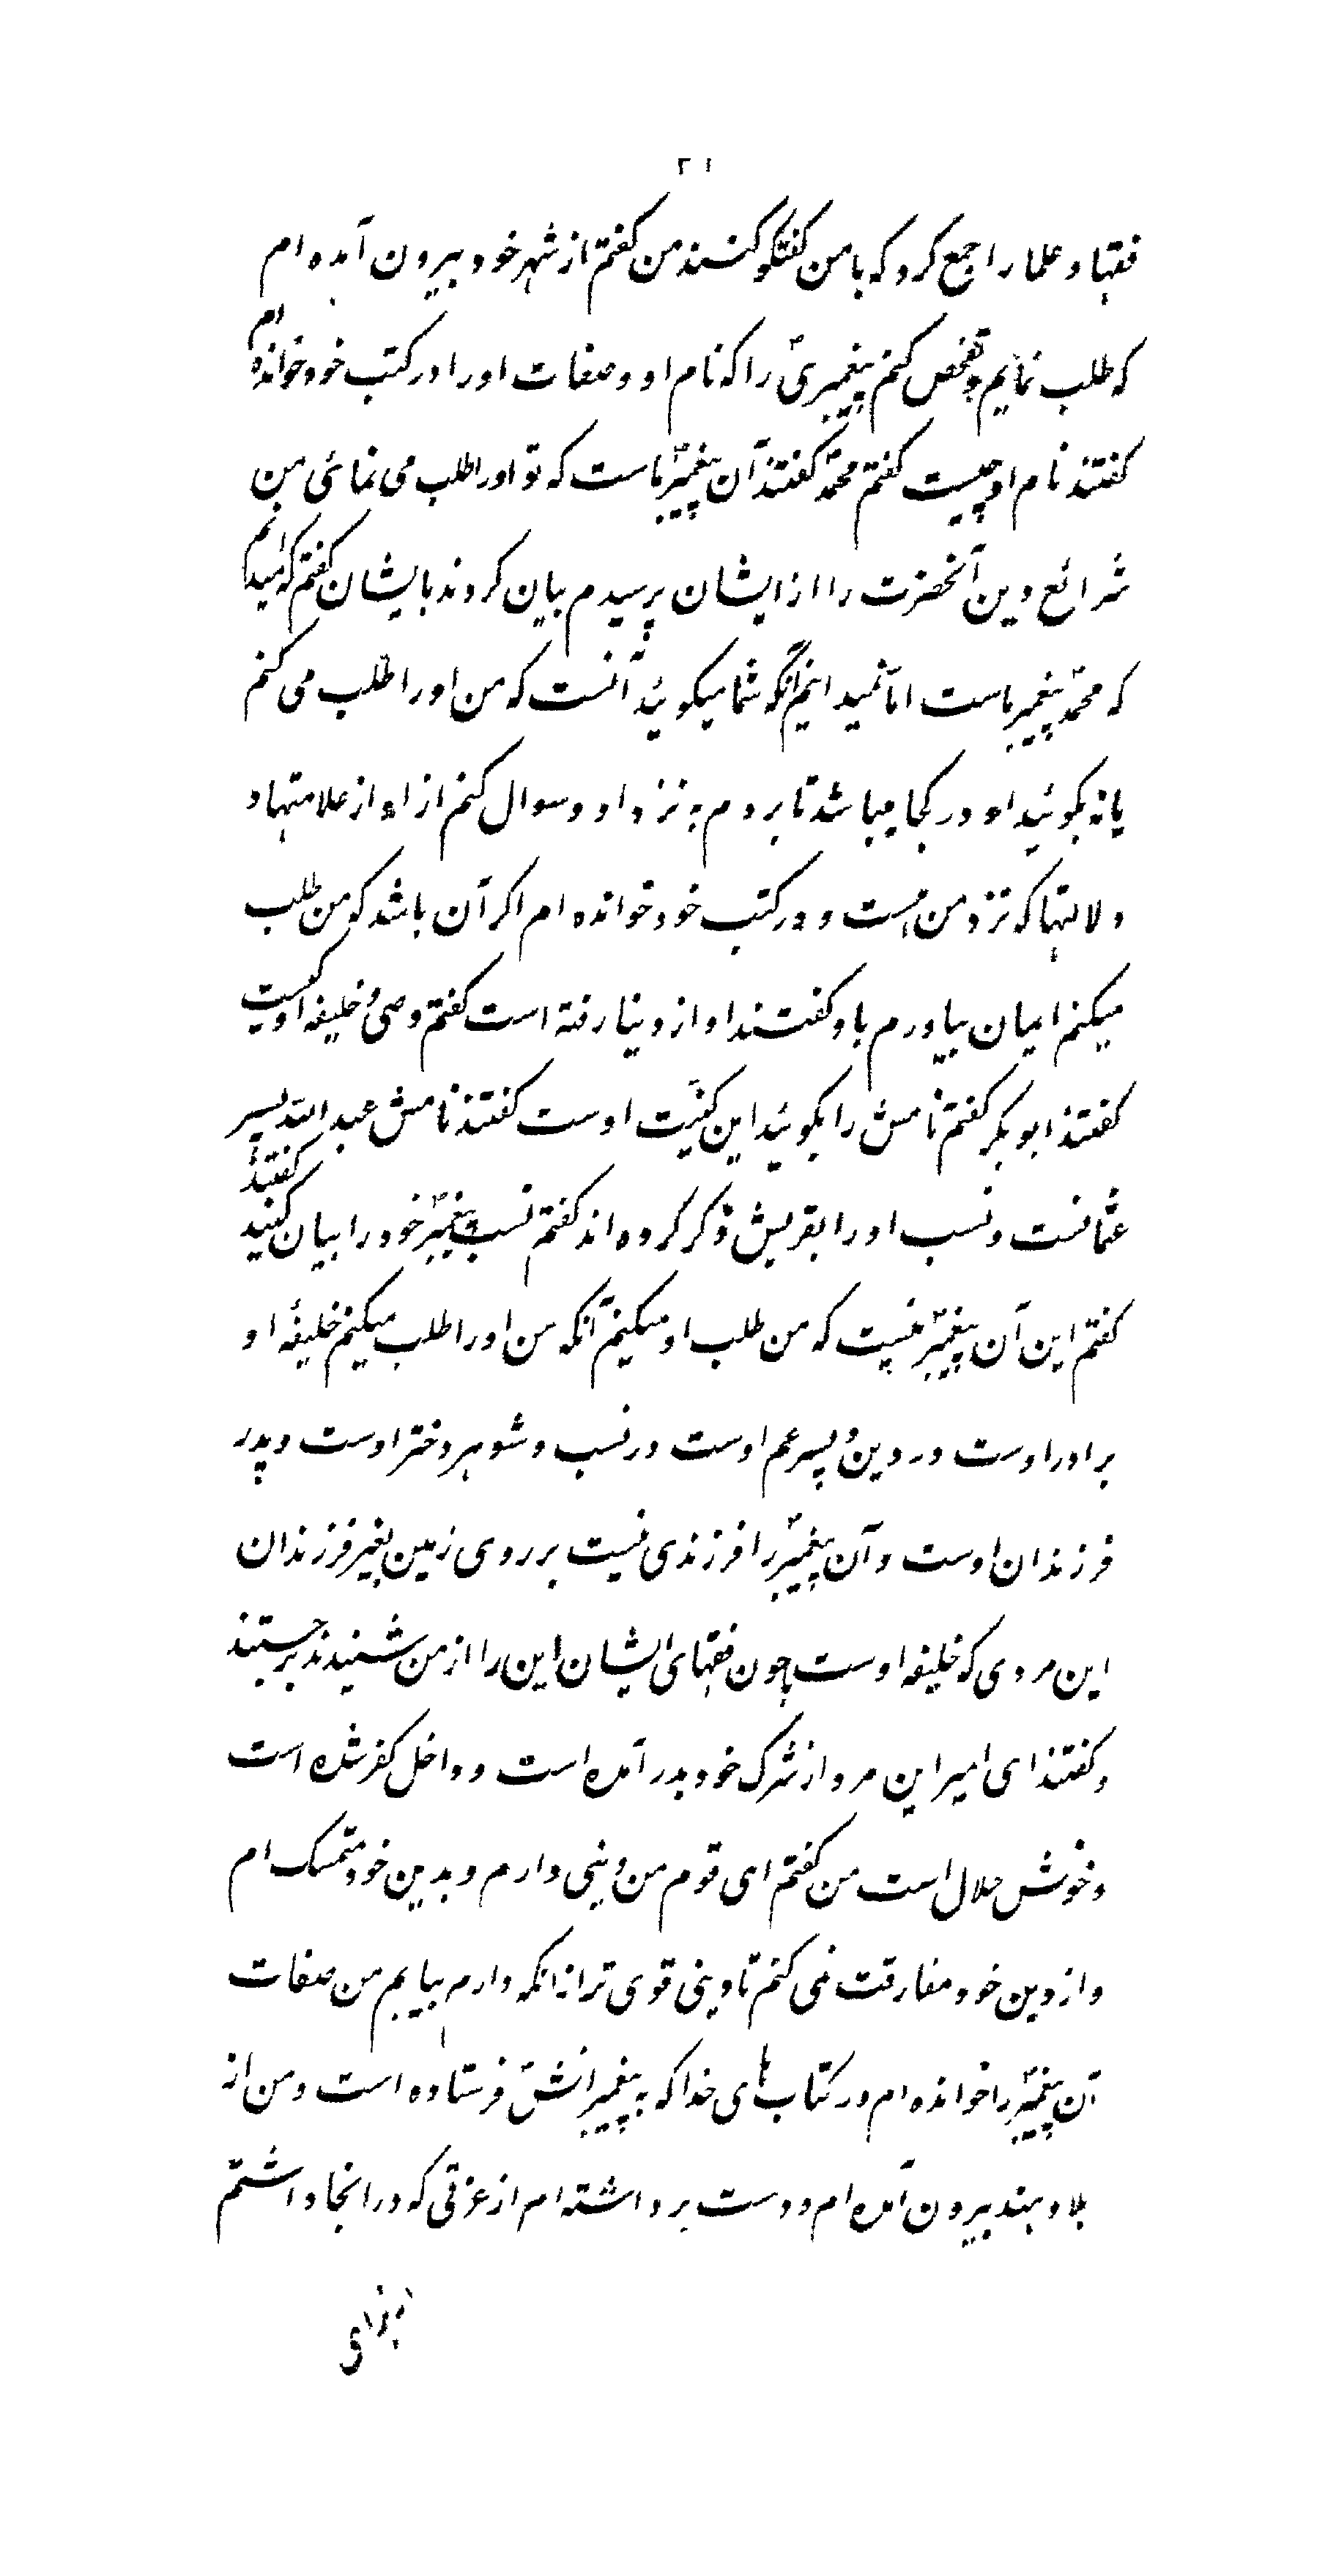 ۲۱
فقها و علما را جمع کرد که با من گفتگو کنند من گفتم از شهر خود بیرون آمده ام
که طلب نمایم و تفحص کنم پیغمبری را که نام او و صفات او را در کتب خود خوانده ام
گفتند نام او چیست گفتم محمد گفتند آن پیغمبر ماست که تو او را طلب می نمائی من
شرائع دین آنحضرت را از ایشان پرسیدم بیان کردند بایشان گفتم که میدانم
که محمد پیغمبر ماست اما نمیدانیم آنکه شما میگوئید آنست که من او را طلب می کنم
یا نه بگوئید او در کجا میباشد تا بروم به نزد او و سوال کنم از او از علامتها و
دلالتها که نزد من است و در کتب خود خوانده ام اگر آن باشد که من طلب
میکنم ایمان بیاورم باو گفتند او از دنیا رفته است گفتم وصی و خلیفه او کیست
گفتند ابوبکر گفتم نامش را بگوئید این کنیت اوست گفتند نامش عبد الله پسر
عثمانست و نسب او را بقریش ذکر کرده اند گفتم نسب پیغمبر خود را بیان کنید گفتند
گفتم این آن پیغمبر نیست که من طلب او میکنم آنکه من او را طلب میکنم خلیفۀ او
برادر اوست در دین و پسر عم اوست در نسب و شوهر دختر اوست و پدر
فرزندان اوست و آن پیغمبر را فرزندی نیست بر روی زمین بغیر فرزندان
این مردی که خلیفه اوست چون فقهای ایشان این را از من شنیدند برجستند
و گفتند ای امیر این مرد از شرک خود بدر آمده است و داخل کفر شده است
و خونش حلال است من گفتم ای قوم من دینی دارم و بدین خود متمسک ام
و از دین خود مفارقت نمی کنم تا دینی قوی تر از انکه دارم بیابم من صفات
آن پیغمبر را خوانده ام در کتاب های خدا که به پیغمبرانش فرستاده است و من از
بلاد هند بیرون آمده ام و دست برداشته ام از عزتی که در انجا داشتم